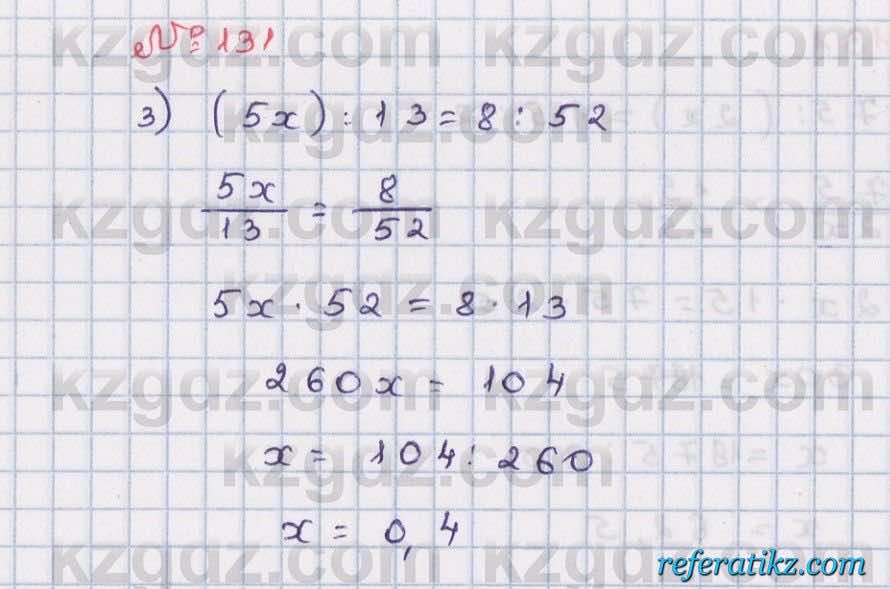 № 131
3) (5x) : 13 = 8 : 52
5x/13 = 8/52
5x · 52 = 8 · 13
260x = 104
x = 104 : 260
x = 0,4
kzgdz.com
referatikz.com